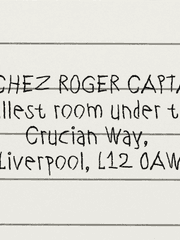 CHEZ ROGER CAPTA
llest room under t
Crucian Way,
Liverpool, L12 0AW